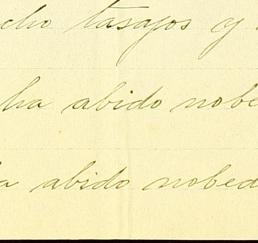 cho tasajos y
ha abido nobe
a abido nobed